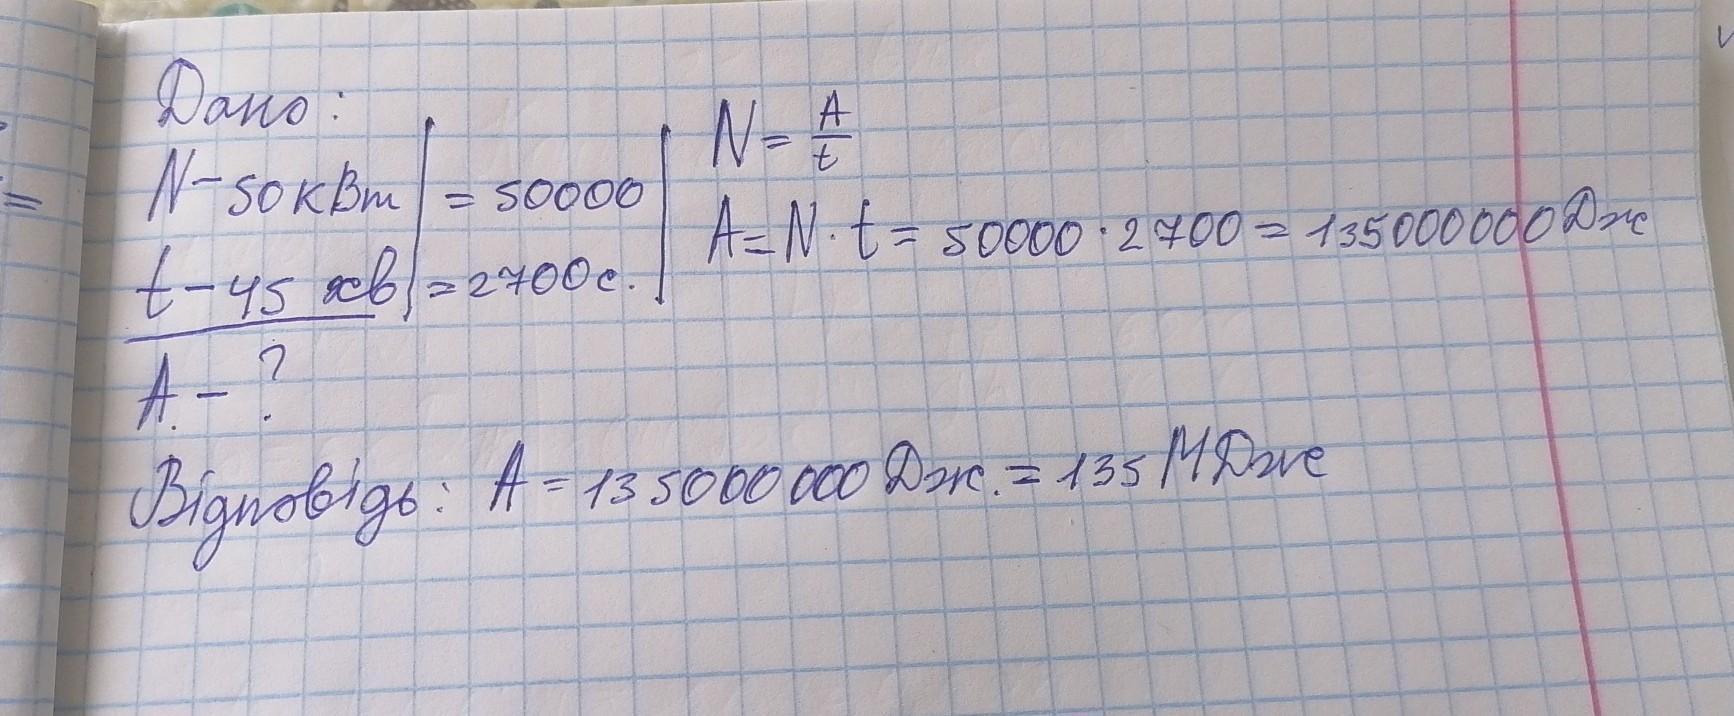 Дано:
N - 50 кВт = 50000
t - 45 хв = 2700 с.
A - ?
N = A/t
A = N · t = 50000 · 2700 = 135000000 Дж
Відповідь: A = 135000000 Дж. = 135 МДж